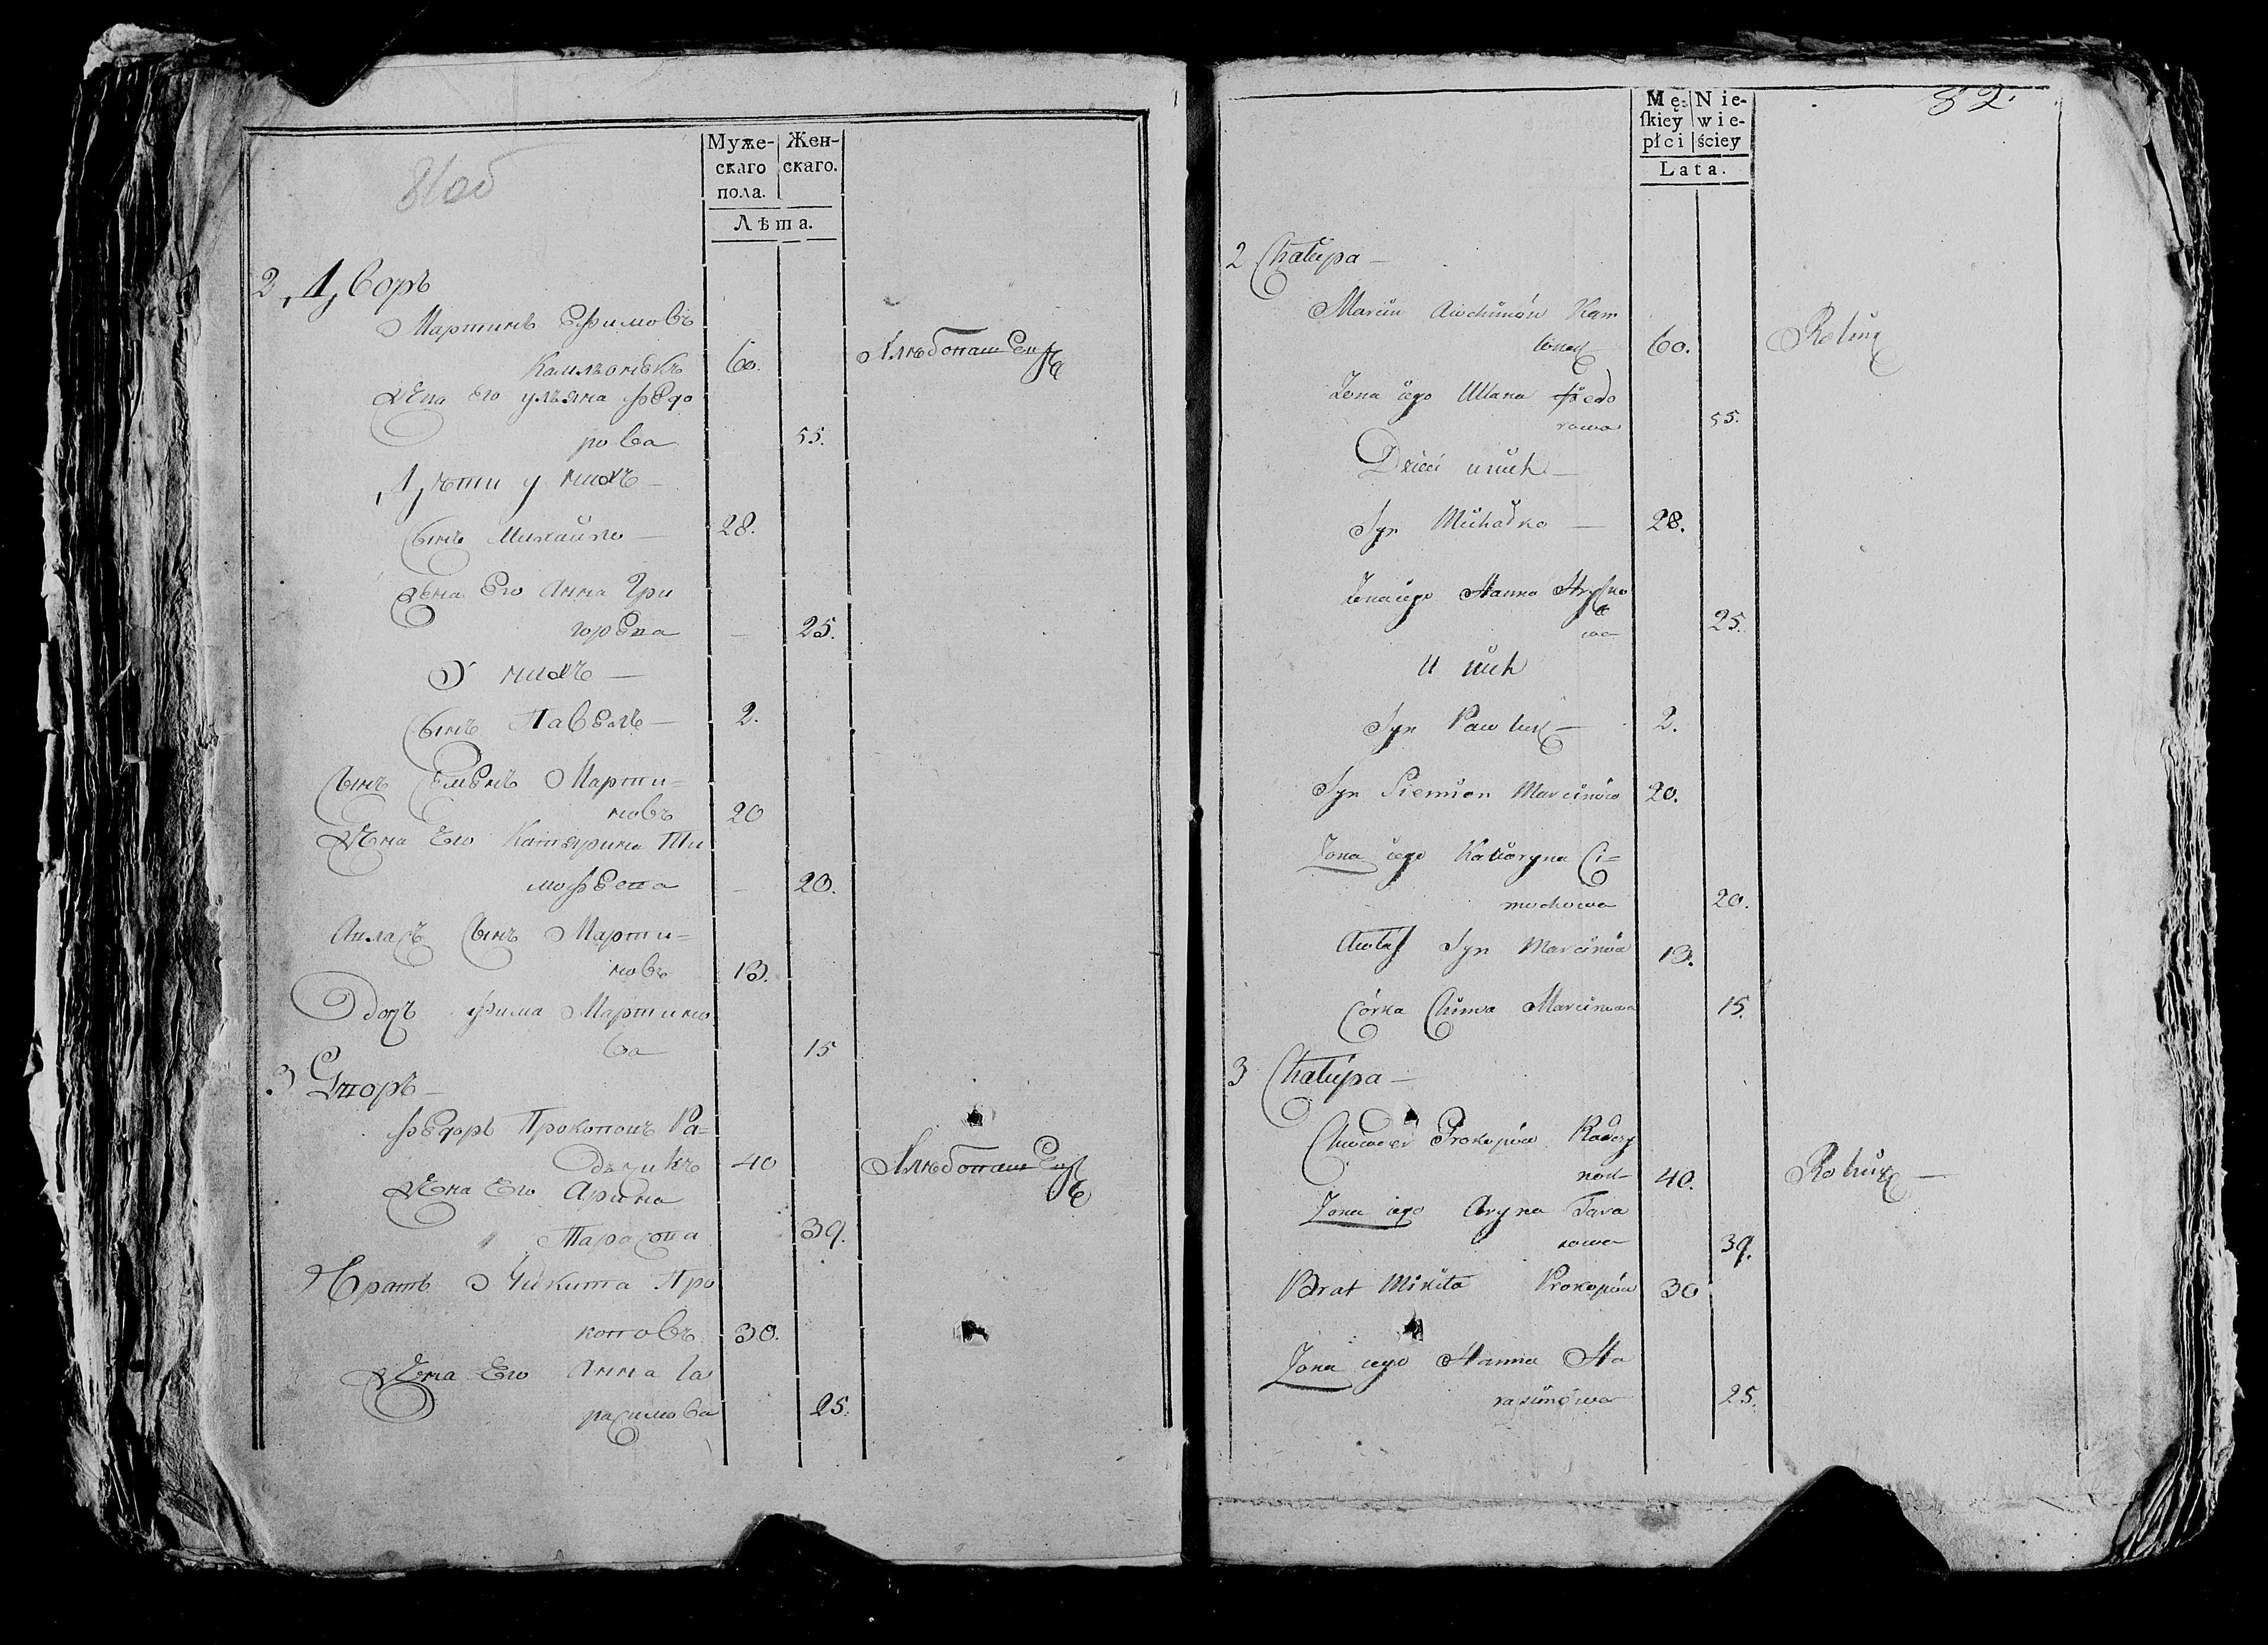 81об
Муже- Жен-
скаго скаго.
пола.
Лѣта.
2 Дворъ
Мартинъ Ефимовъ
Камлъонъкъ 60. Хлѣбопашецъ
Жена Его Ульяна Федо
рова 55.
Дѣти у нихъ —
Сынъ Михайло — 28.
Жена Его Анна Гри
горева — 25.
У нихъ —
Сынъ Павелъ — 2.
Сынъ Семенъ Марти=
новъ 20
Жена Его Катярина Ти
мофеева — 20.
Сынъ Марти=
новъ 13.
Дочь Фима Мартино
ва 15
3 Дворъ —
Федоръ Прокоповъ Ра=
40 Хлѣбопашецъ
Жена Его Арина
Тарасова 39.
Братъ Никита Про
коповъ 30.
Жена Его Анна Га
расимова 25.
82.
Mę- Nie-
ſkiey wie-
płci ściey
Lata.
2 Chałupa —
Marcin Auchimów Kam
lonek 60. Rolnik
Żona iego Ullana Fiedo
rowa 55.
Dzieci u nich —
Syn Michałko — 28.
Żona iego Hanna Hryhro
wa 25.
U nich
Syn Pawluk — 2.
Syn Siemion Marcinów 20.
Żona iego Kataryna Ci=
mochowa 20.
Syn Marcinów 13.
Córka Chima Marcinowa 15.
3 Chałupa —
Chwiedor Prokopów
40. Rolnik —
Żona iego Aryna Tara
sowa 39.
Brat Mikita Prokopów 30
Żona iego Hanna Ha
rasimowa 25.